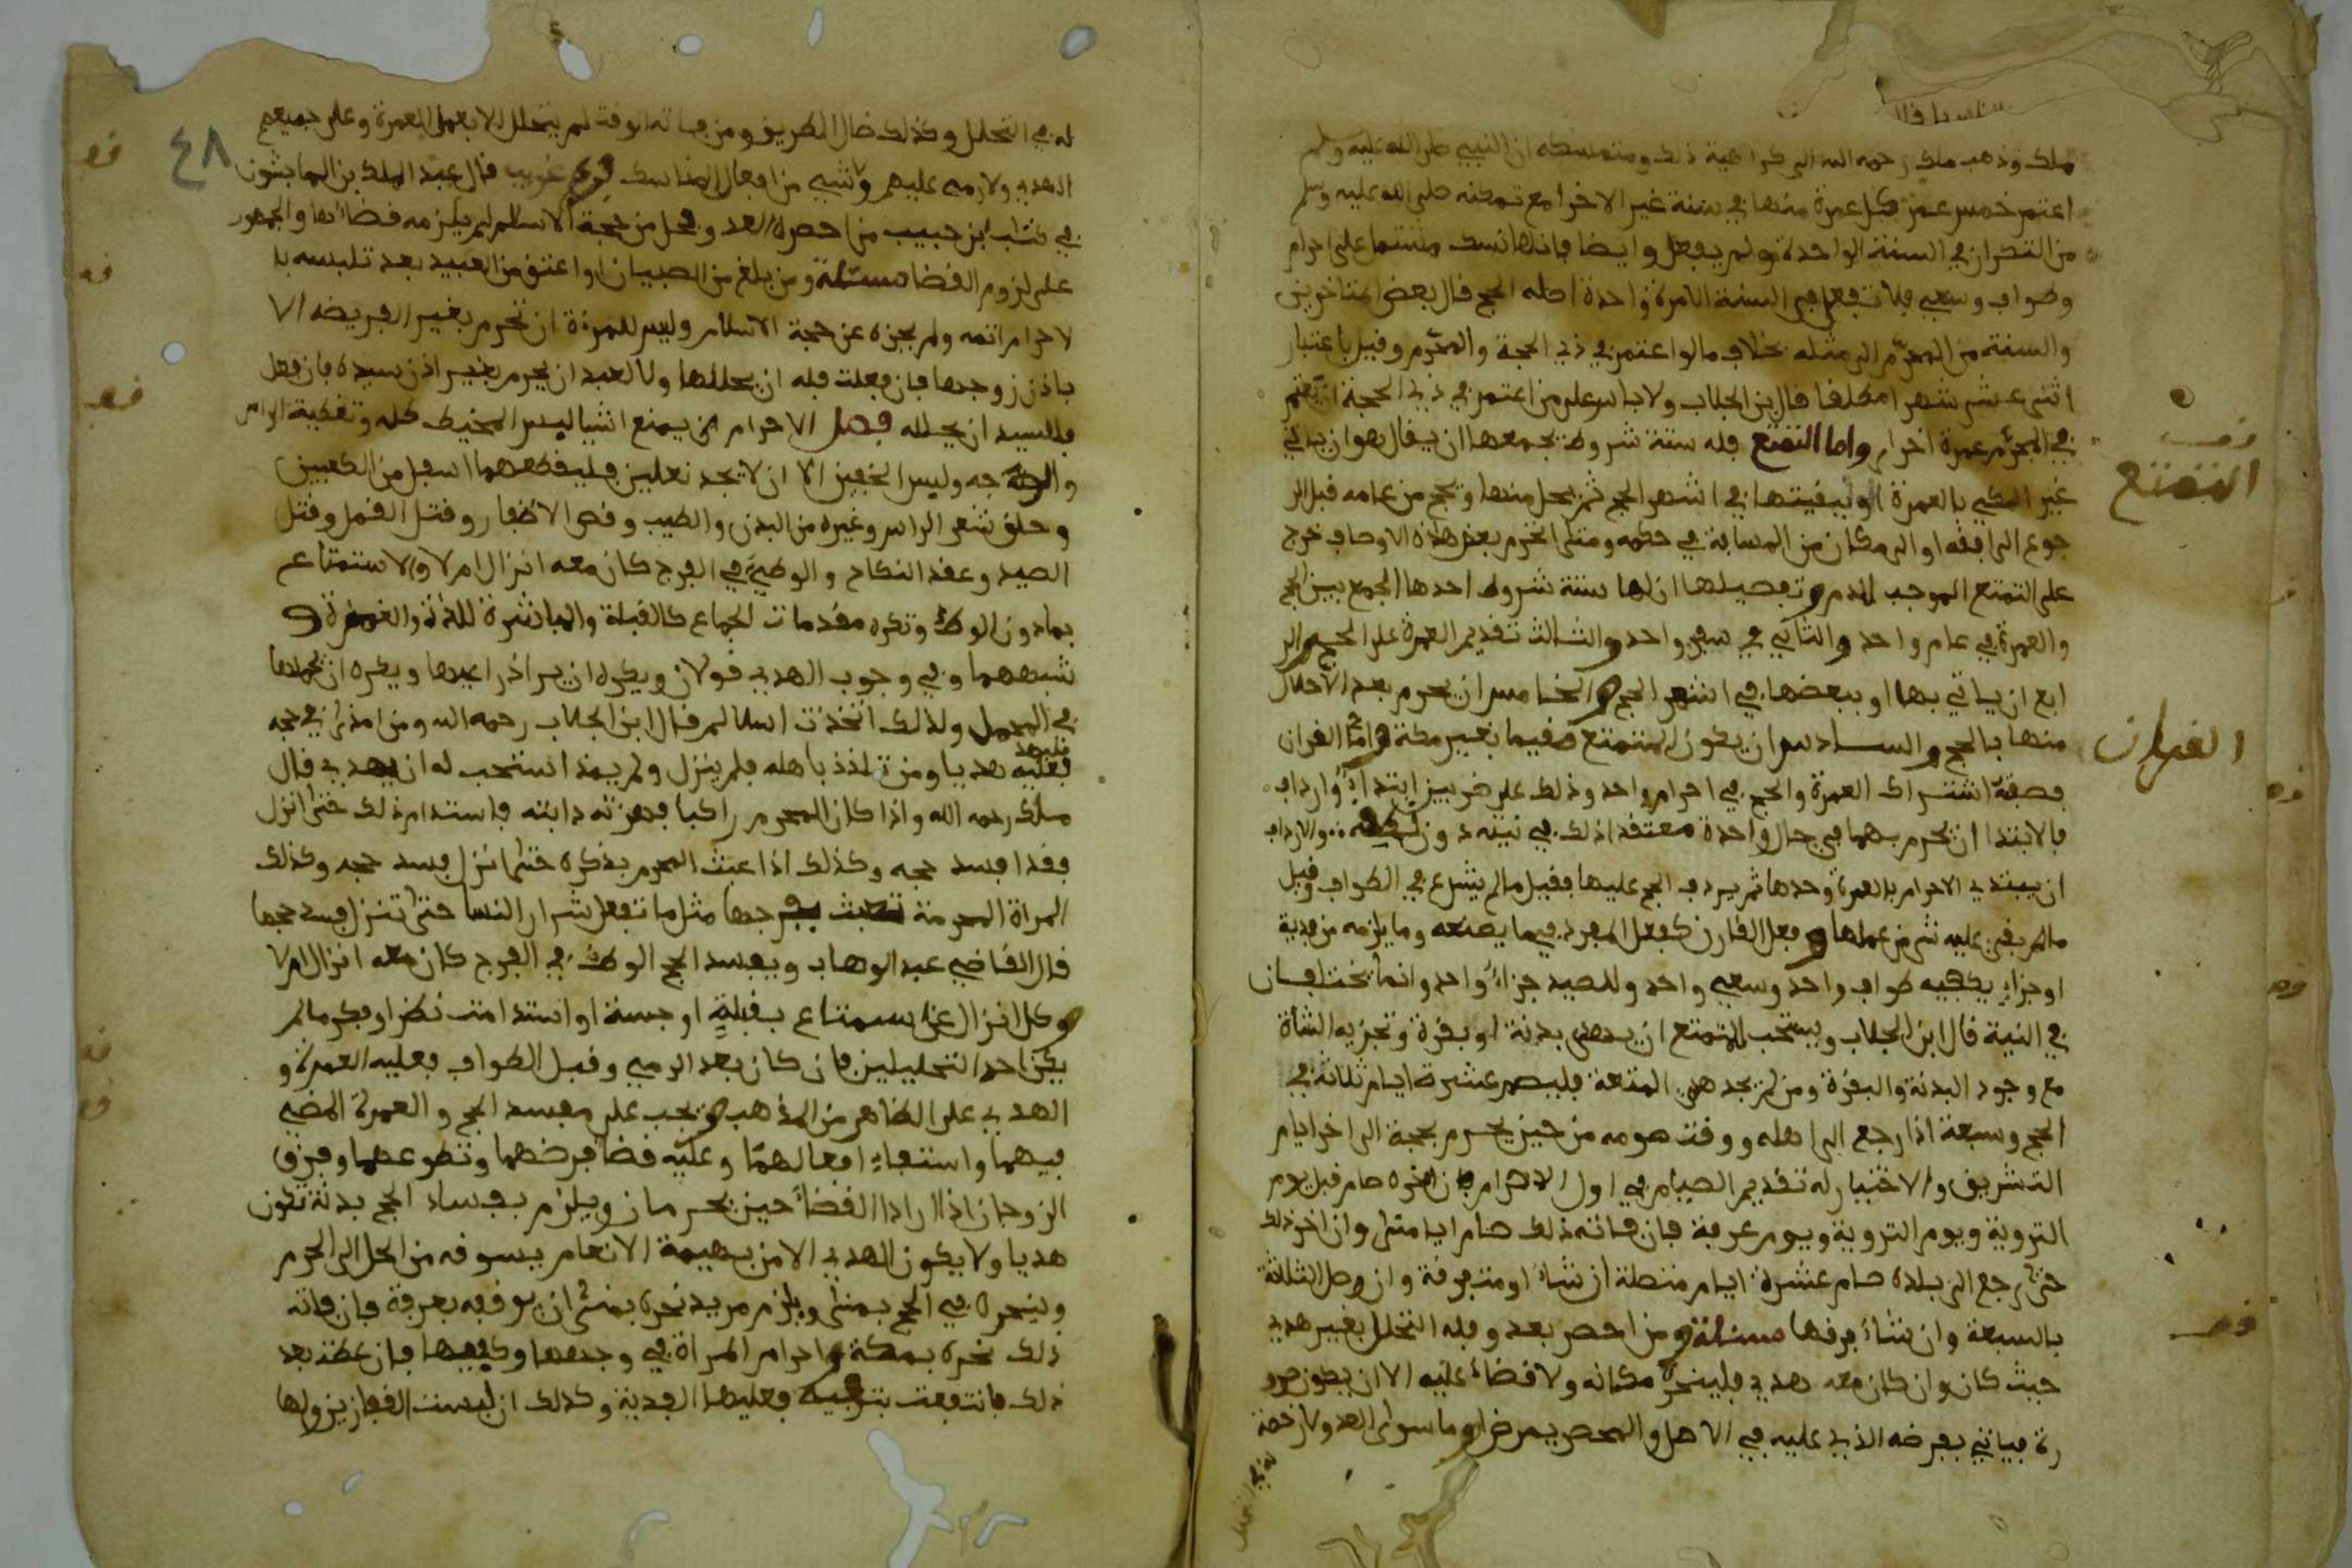 ملك وذهب ملك رحمه الله الى كراهية ذلك ومتمسكه ان النبي صلى الله عليه وسلم
اعتمر خمس عمر كل عمرة منها في سنة غير الاخرا مع تمكنه صلى الله عليه وسلم
من التكرار في السنة الواحدة ولم يفعل وايضا فانها نسك مشتمل على احرام
وطواف وسعي فلا تفعل في السنة الا مرة واحدة اصله الحج قال بعض المتاخرين
والسنة من المحرم الى مثله بخلاف ما لو اعتمر في ذي الحجة والمحرم وقيل باعتبار
اثنى عشر شهرا مطلقا قال بن الجلاب ولا باس على من اعتمر في ذي الحجة ان يعتمر
في المحرم عمرة اخرا واما التمتع فله ستة شروط يجمعها ان يقال هو ان ياتي
التمتع
غير المكي بالعمرة او ببقيتها في اشهر الحج ثم يحل منها ويحج من عامه قبل الر
جوع الى افقه او الى مكان من المسافة في حكمه ومتى انخرم بعض هذه الاوصاف خرج
على التمتع الموجب للدم وتفصيلها ان لها ستة شروط احدها الجمع بين الحج
والعمرة في عام واحد والثاني في سفر واحد والثالث تقديم العمرة على الحج والر
ابع ان ياتي بها او ببعضها في اشهر الحج والخامس ان يحرم بعد الاحلال
منها بالحج والسادس ان يكون المتمتع مقيما بغير مكة واما القران
القران
فصفة اشتراك العمرة والحج في احرام واحد وذلك على ضربين ابتداء وارداف
فالابتدا ان يحرم بهما في حال واحدة معتقدا ذلك في نيته دون لفظه والارداف
ان يبتدي الاحرام بالعمرة وحدها ثم يردف الحج عليها فقيل ما لم يشرع في الطواف وقيل
ما لم يبقى عليه شي من عملها وفعل القارن كفعل المفرد فيما يصنعه وما يلزمه من فدية
او جزاء يكفيه طواف واحد وسعي واحد وللصيد جزاء واحد وانما يختلفان
في النية قال ابن الجلاب ويستحب للمتمتع ان يهدى بدنة او بقرة وتجزيه الشاة
مع وجود البدنة والبقرة ومن لم يجد هدي المتعة فليصم عشرة ايام ثلاثة في
الحج وسبعة اذا رجع الى اهله ووقت صومه من حين يحرم بحجة الى اخر ايام
التشريق والاختيار له تقديم الصيام في اول الاحرام فان اخره صام قبل يوم
التروية ويوم التروية ويوم عرفة فان فاته ذلك صام ايام منى وان اخر ذلك
حتى رجع الى بلده صام عشرة ايام متصلة ان شاء او متفرقة وان وصل الثلاثة
بالسبعة وان شاء فرقها مسئلة ومن احصر بعدو فله التحلل بغير هدي
حيث كان وان كان معه هدي فلينحره مكانه ولا قضاء عليه الا ان يكون صرو
رة فياتي بفرضه الذي عليه في الاصل والمحصر بمرض او ما سوى العدو لا رخصة
له في التحلل
٤٨
له في التحلل وكذلك ضال الطريق ومن فاته الوقت لم يتحلل الا بعمل العمرة وعلى جميعهم
الهدي ولا رمي عليهم ولا شي من افعال المناسك فرع غريب قال عبد الملك بن الماجشون
في كتاب ابن حبيب من احصره العدو فحل من حجة الاسلام لم يلزمه قضاءها والجمهور
على لزوم القضا مسئلة ومن بلغ من الصبيان او اعتق من العبيد بعد تلبسه با
لاحرام اتمه ولم يجزه عن حجة الاسلام وليس للمرءة ان تحرم بغير الفريضه الا
باذن زوجها فان فعلت فله ان يحللها ولا لعبد ان يحرم بغير اذن سيده فان فعل
فللسيد ان يحلله فصل الاحرام يمنع اشيا لبس المخيط كله وتغطية الراس
والوجه ولبس الخفين الا ان لا يجد نعلين فليقطعهما اسفل من الكعبين
وحلق شعر الراس وغيره من البدن والطيب وقص الاظفار وقتل القمل وقتل
الصيد وعقد النكاح والوطي في الفرج كان معه انزال ام لا والاستمتاع
بما دون الوطئ وتكره مقدمات الجماع كالقبلة والمباشرة للذة والغمزة و
شبههما وفي وجوب الهدي قولان ويكره ان يرا ذراعيها ويكره ان يحملها
في المحمل ولذلك اتخذت السلالم قال ابن الجلاب رحمه الله ومن امذى في حجه
فعليه هديا ومن تلذذ باهله فلم ينزل ولم يمذ استحب له ان يهدي قال
ملك رحمه الله واذا كان المحرم راكبا فهزته دابته فاستدام ذلك حتى انزل
فقد افسد حجه وكذلك اذا عبث المحرم بذكره حتى انزل فسد حجه وكذلك
المراة المحرمة تعبث بفرجها مثل ما تفعل شرار النسا حتى تنزل فسد حجها
قال القاضي عبد الوهاب ويفسد الحج الوطئ في الفرج كان معه انزال ام لا
وكل انزال عن استمتاع بقبلة او جسة او استدامت نظر او فكر ما لم
يكن احد التحليلين فان كان بعد الرمي وقبل الطواف فعليه العمرة و
الهدي على الظاهر من المذهب ويجب على مفسد الحج والعمرة المضي
فيهما واستيفاء افعالهما وعليه قضا فرضهما وتطوعهما وفرق
الزوجان اذا ارادا القضاء حين يحرمان ويلزم بفساد الحج بدنة تكون
هديا ولا يكون الهدي الا من بهيمة الانعام يسوقه من الحل الى الحرم
وينحره في الحج بمنى ويلزم مريد نحره بمنى ان يوقفه بعرفة فان فاته
ذلك نحره بمكة واحرام المراة في وجهها وكفيها فان غطت بعد
ذلك فانتفعت بترفيه فعليها الفدية وكذلك ان لبست القفازين ولها